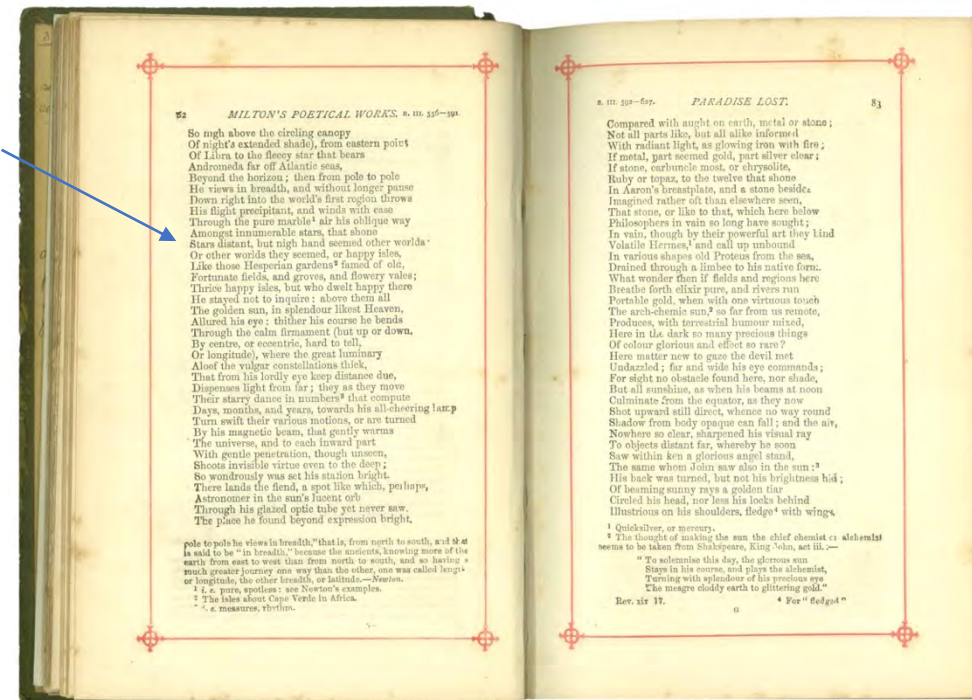 82 MILTON'S POETICAL WORKS. B. III. 556—591.
So nigh above the circling canopy
Of night's extended shade), from eastern point
Of Libra to the fleecy star that bears
Andromeda far off Atlantic seas,
Beyond the horizon; then from pole to pole
He views in breadth, and without longer pause
Down right into the world's first region throws
His flight precipitant, and winds with ease
Through the pure marble¹ air his oblique way
Amongst innumerable stars, that shone
Stars distant, but nigh hand seemed other worlds
Or other worlds they seemed, or happy isles,
Like those Hesperian gardens² famed of old,
Fortunate fields, and groves, and flowery vales;
Thrice happy isles, but who dwelt happy there
He stayed not to inquire: above them all
The golden sun, in splendour likest Heaven,
Allured his eye: thither his course he bends
Through the calm firmament (but up or down,
By centre, or eccentric, hard to tell,
Or longitude), where the great luminary
Aloof the vulgar constellations thick,
That from his lordly eye keep distance due,
Dispenses light from far; they as they move
Their starry dance in numbers³ that compute
Days, months, and years, towards his all-cheering lamp
Turn swift their various motions, or are turned
By his magnetic beam, that gently warms
The universe, and to each inward part
With gentle penetration, though unseen,
Shoots invisible virtue even to the deep;
So wondrously was set his station bright.
There lands the fiend, a spot like which, perhaps,
Astronomer in the sun's lucent orb
Through his glazed optic tube yet never saw.
The place he found beyond expression bright,
pole to pole he views in breadth," that is, from north to south, and that
is said to be "in breadth," because the ancients, knowing more of the
earth from east to west than from north to south, and so having a
much greater journey one way than the other, one was called length
or longitude, the other breadth, or latitude.—Newton.
¹ i. e. pure, spotless: see Newton's examples.
² The isles about Cape Verde in Africa.
³ i. e. measures, rhythm.
B. III. 592—627. PARADISE LOST. 83
Compared with aught on earth, metal or stone;
Not all parts like, but all alike informed
With radiant light, as glowing iron with fire;
If metal, part seemed gold, part silver clear;
If stone, carbuncle most, or chrysolite,
Ruby or topaz, to the twelve that shone
In Aaron's breastplate, and a stone besides
Imagined rather oft than elsewhere seen,
That stone, or like to that, which here below
Philosophers in vain so long have sought;
In vain, though by their powerful art they bind
Volatile Hermes,¹ and call up unbound
In various shapes old Proteus from the sea,
Drained through a limbec to his native form.
What wonder then if fields and regions here
Breathe forth elixir pure, and rivers run
Portable gold, when with one virtuous touch
The arch-chemic sun,² so far from us remote,
Produces, with terrestrial humour mixed,
Here in the dark so many precious things
Of colour glorious and effect so rare?
Here matter new to gaze the devil met
Undazzled; far and wide his eye commands;
For sight no obstacle found here, nor shade,
But all sunshine, as when his beams at noon
Culminate from the equator, as they now
Shot upward still direct, whence no way round
Shadow from body opaque can fall; and the air,
Nowhere so clear, sharpened his visual ray
To objects distant far, whereby he soon
Saw within ken a glorious angel stand,
The same whom John saw also in the sun:³
His back was turned, but not his brightness hid;
Of beaming sunny rays a golden tiar
Circled his head, nor less his locks behind
Illustrious on his shoulders, fledge⁴ with wings,
¹ Quicksilver, or mercury.
² The thought of making the sun the chief chemist or alchemist
seems to be taken from Shakspeare, King John, act iii.:—
"To solemnise this day, the glorious sun
Stays in his course, and plays the alchemist,
Turning with splendour of his precious eye
The meagre cloddy earth to glittering gold."
Rev. xix 17. ⁴ For "fledged"
G